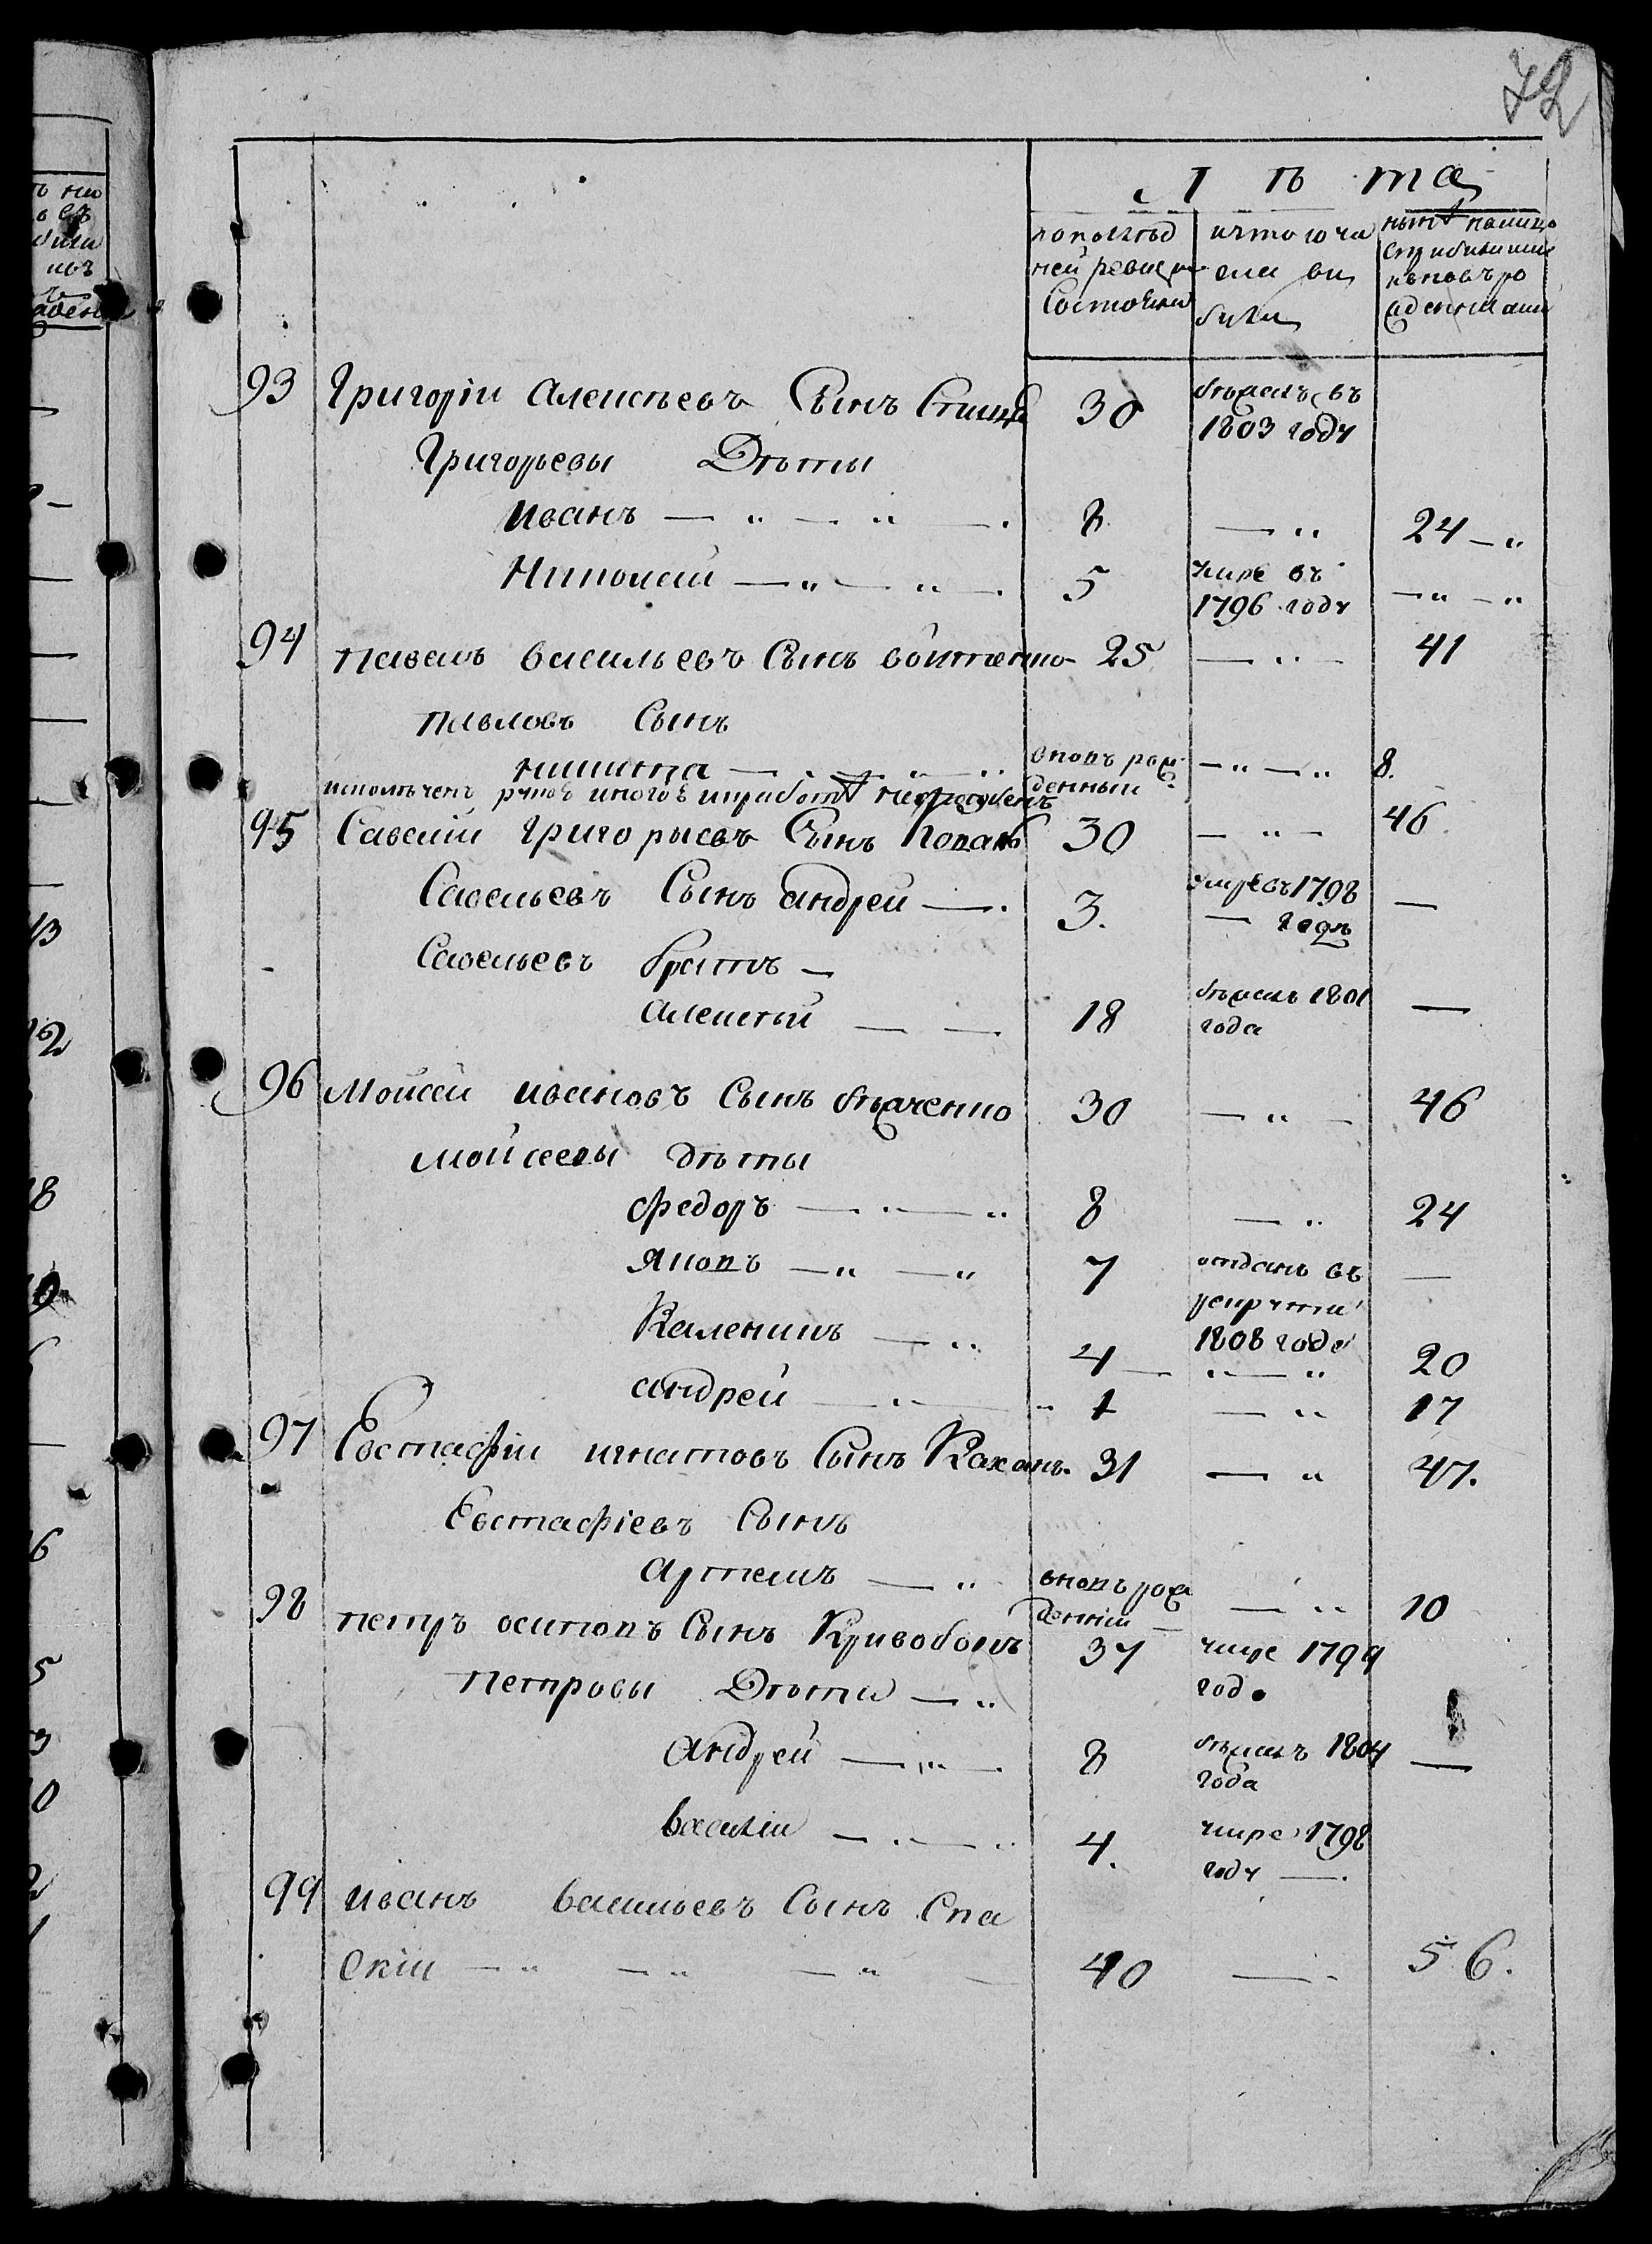 72
Лѣта
попослѣд
ней ревизи
Состояли
истого чи
сла вы
были
нынѣ налицо
Сприбылыми
ивновь ро
жденными
93 Григорій Алексѣевъ Сынъ 30 бѣжалъ въ
1803 году
Григорьевы Дѣти
Иванъ — " — " — 8 — " 24 — "
Николай — " — " — 5 умре въ
1796 году — " — "
94 Павелъ Василь евъ Сынъ войтенко 25 — " — 41
Павловъ Сынъ
Никита — вновь рож
денный — " — " 8.
95 Савелій Григорьевъ Сынъ Копань 30 — " — 46
Савельевъ Сынъ андрей — 3. умре въ 1798
— годѣ —
Савельевъ братъ —
Алексѣй — — 18 бѣжалъ 1801
года —
96 Моисей Ивановъ Сынъ Ткаченко 30 — " — 46
Моисеевы дѣти
Федоръ — " — " 8 — " 24
Яковъ — " — " 7 отданъ въ
рекруты
1808 года —
Каленикъ — " 4 — " — " 20
андрей — " — " 1 — " 17
97 Евстафій игнатовъ Сынъ Кахань 31 — " 47.
Евстафіевъ Сынъ
Артемъ — " вновь рож
денній — " 10
98 Петръ осиповъ Сынъ Кривобокъ 37 умре 1799
годо
Петровы Дѣти — "
Андрей — " — 8 бѣжалъ 1804
года —
Василій — " — " 4. умре 1798
году —
99 Иванъ Васильевъ Сынъ Спа
Скій — " — " — " — 40 — " 56.